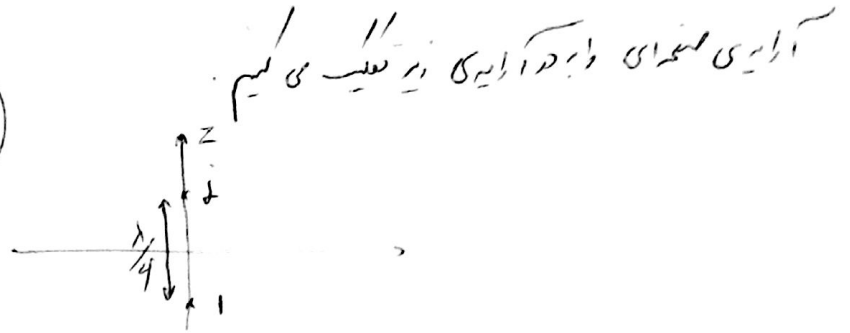 آرایه‌ی صفحه‌ای را به دو آرایه‌ی زیر تفکیک می کنیم.
z
j
λ/4
1